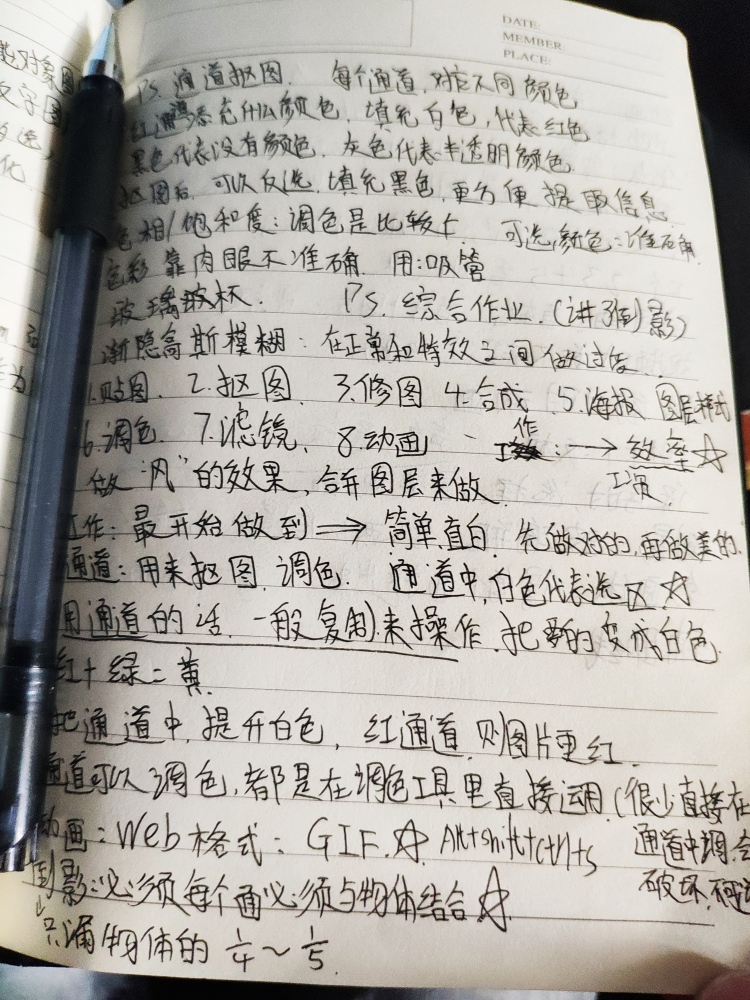 DATE:
MEMBER:
PLACE:
Ps 通道抠图. 每个通道,对应不同颜色
红通道添充什么颜色,填充白色,代表红色
黑色代表没有颜色,灰色代表半透明颜色
抠图后,可以反选,填充黑色,更方便提取信息
色相/饱和度:调色是比较 可选颜色:准确
色彩靠肉眼不准确 用:吸管
玻璃玻杯. Ps.综合作业.(讲了倒影)
渐隐高斯模糊:在正常和特效之间做过度
1.贴图. 2.抠图. 3.修图 4.合成 5.海报 图层样式
6.调色. 7.滤镜. 8.动画 作
→ 效率☆
做"风"的效果,合并图层来做.
工作:最开始做到⇒ 简单,直白,先做对的,再做美的.
通道:用来抠图.调色. 通道中,白色代表选区.☆
用通道的话.一般复制来操作.把要的变成白色.
红+绿=黄.
把通道中,提升白色,红通道,则图片更红.
通道可以调色,都是在调色工具里直接运用.(很少直接在
动画:Web格式:GIF.☆ Alt+shift+ctrl+s 通道中调,会
倒影:必须每个面必须与物体结合☆. 破坏
↳只漏物体的 1/4~1/5.
对象图
文字图
选,
化